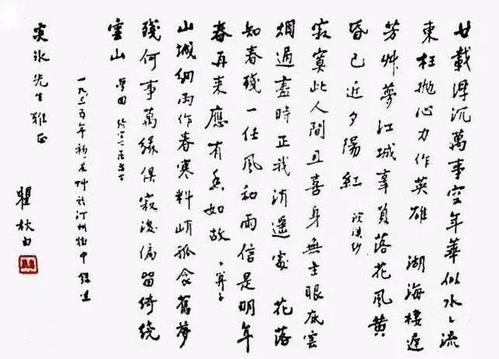 廿載浮沉萬事空年華似水〻流
東枉抛心力作英雄 湖海棲遲
芳艸夢江城辜負落花風黄
昏已近夕陽紅 浣溪沙
寂寞此人間且喜身無主眼底雲
烟過盡時正我逍遥處 花落
知春殘一任風和雨信是明年
春再來應有香如故 卜算子
山城細雨作春寒料峭孤衾舊夢
殘何事萬緣俱寂後偏留綺繞
雲山 夢回
一九三五年初夏艸於汀州獄中 錄呈
先生雅正
瞿秋白